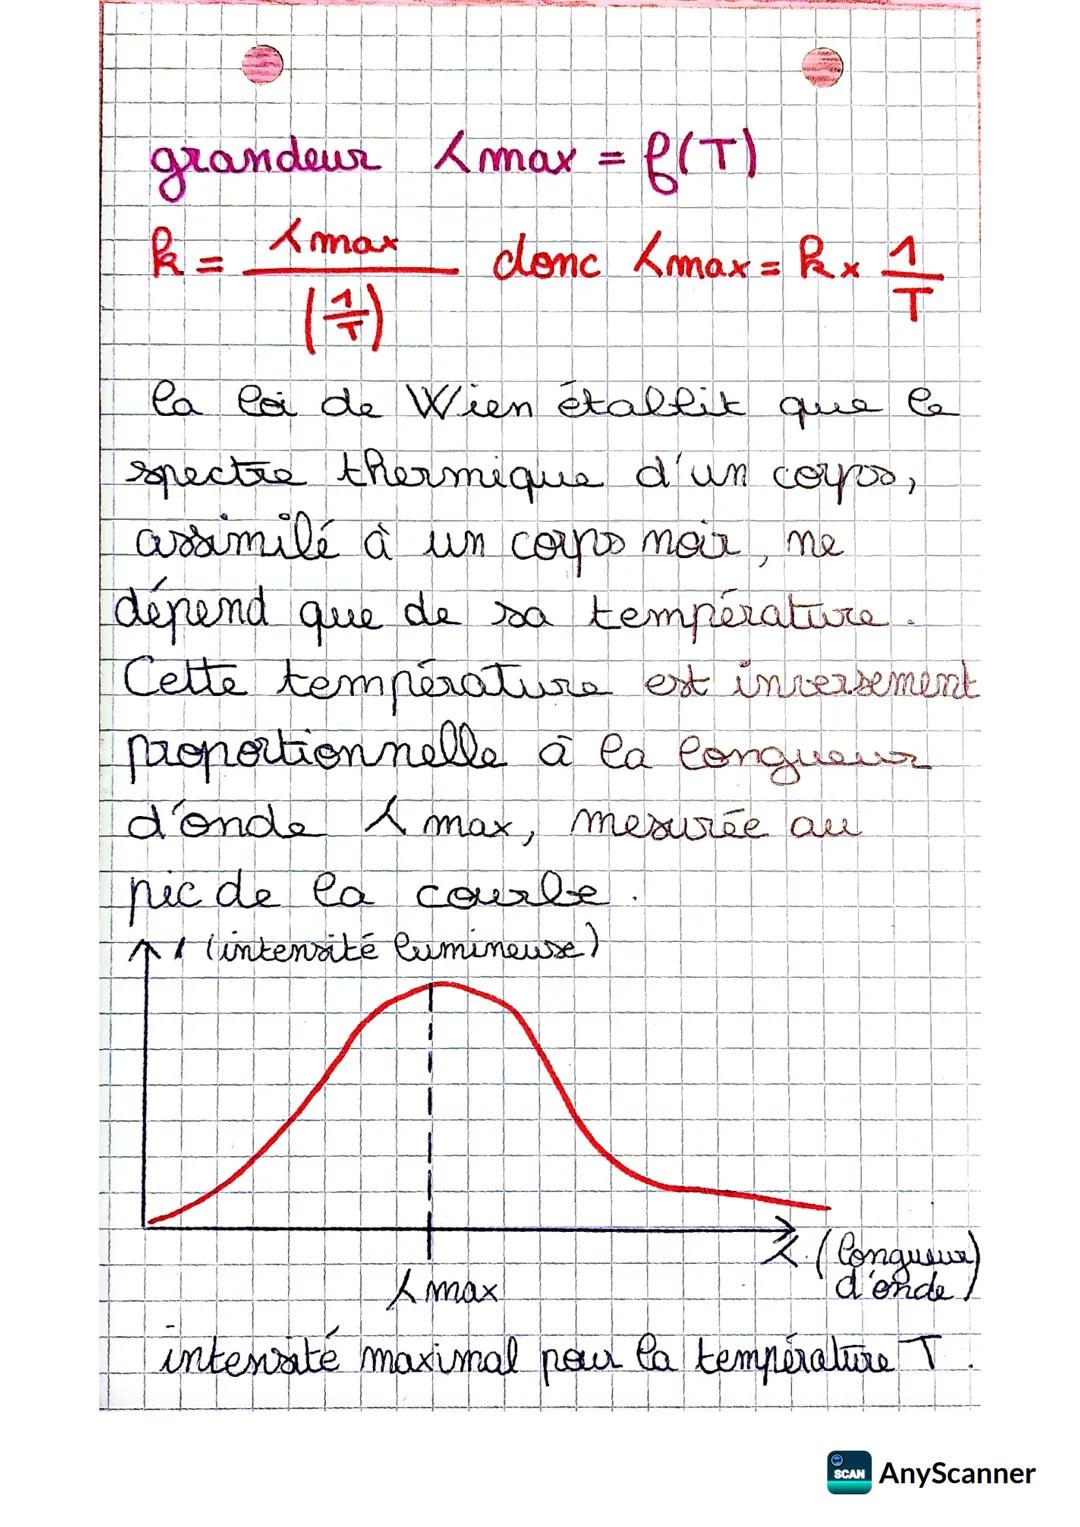 grandeur λmax = f(T)
k = λmax / (1/T) donc λmax = k × 1/T
la loi de Wien établit que le
spectre thermique d'un corps,
assimilé à un corps noir, ne
dépend que de sa température.
Cette température est inversement
proportionnelle à la longueur
d'onde λ max, mesurée au
pic de la courbe.
I (intensité lumineuse)
λ (longueur
d'onde)
λmax
intensité maximal pour la température T.
SCAN AnyScanner